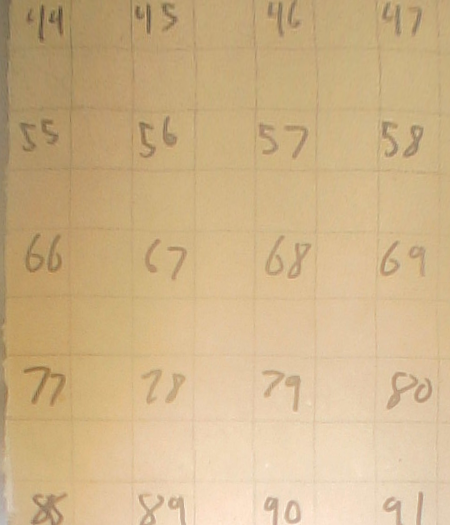 44 45 46 47
55 56 57 58
66 67 68 69
77 78 79 80
88 89 90 91